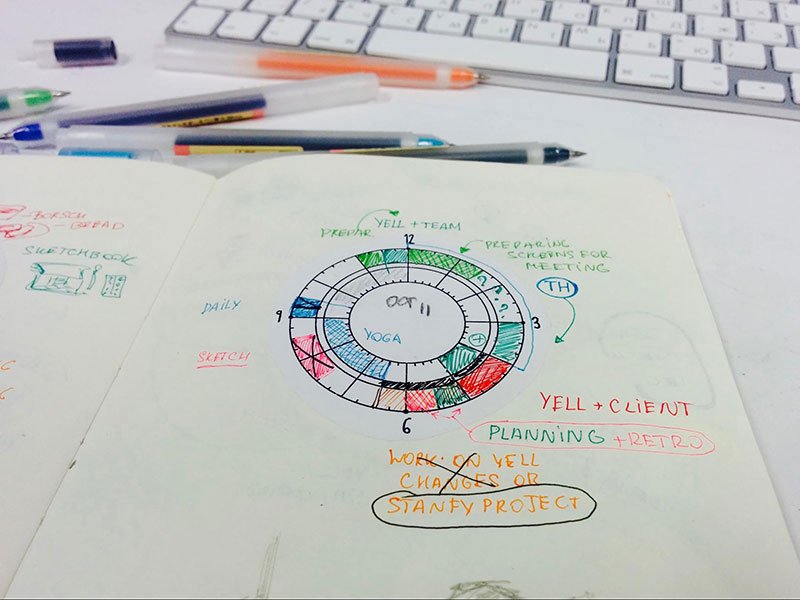 -BORSCH
-BREAD
SKETCHBOOK
YELL + TEAM
PREPAR
12
PREPARING
SCREENS FOR
MEETING
TH
OCT 11
DAILY
9
3
YOGA
SKETCH
6
? ? ? ?
YELL + CLIENT
PLANNING + RETRO
WORK ON YELL
CHANGES OR
STANFY PROJECT